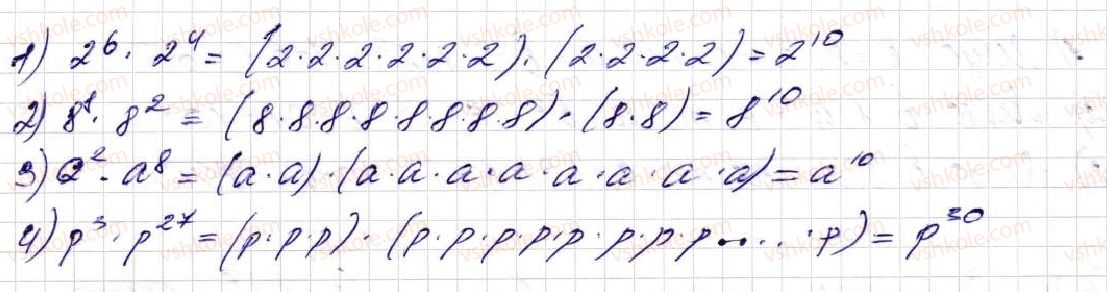 1) 2⁶ · 2⁴ = (2·2·2·2·2·2) · (2·2·2·2) = 2¹⁰
2) 8⁸ · 8² = (8·8·8·8·8·8·8·8) · (8·8) = 8¹⁰
3) a² · a⁸ = (a·a) · (a·a·a·a·a·a·a·a) = a¹⁰
4) p³ · p²⁷ = (p·p·p) · (p·p·p·p·p·p·p·p·...·p) = p³⁰